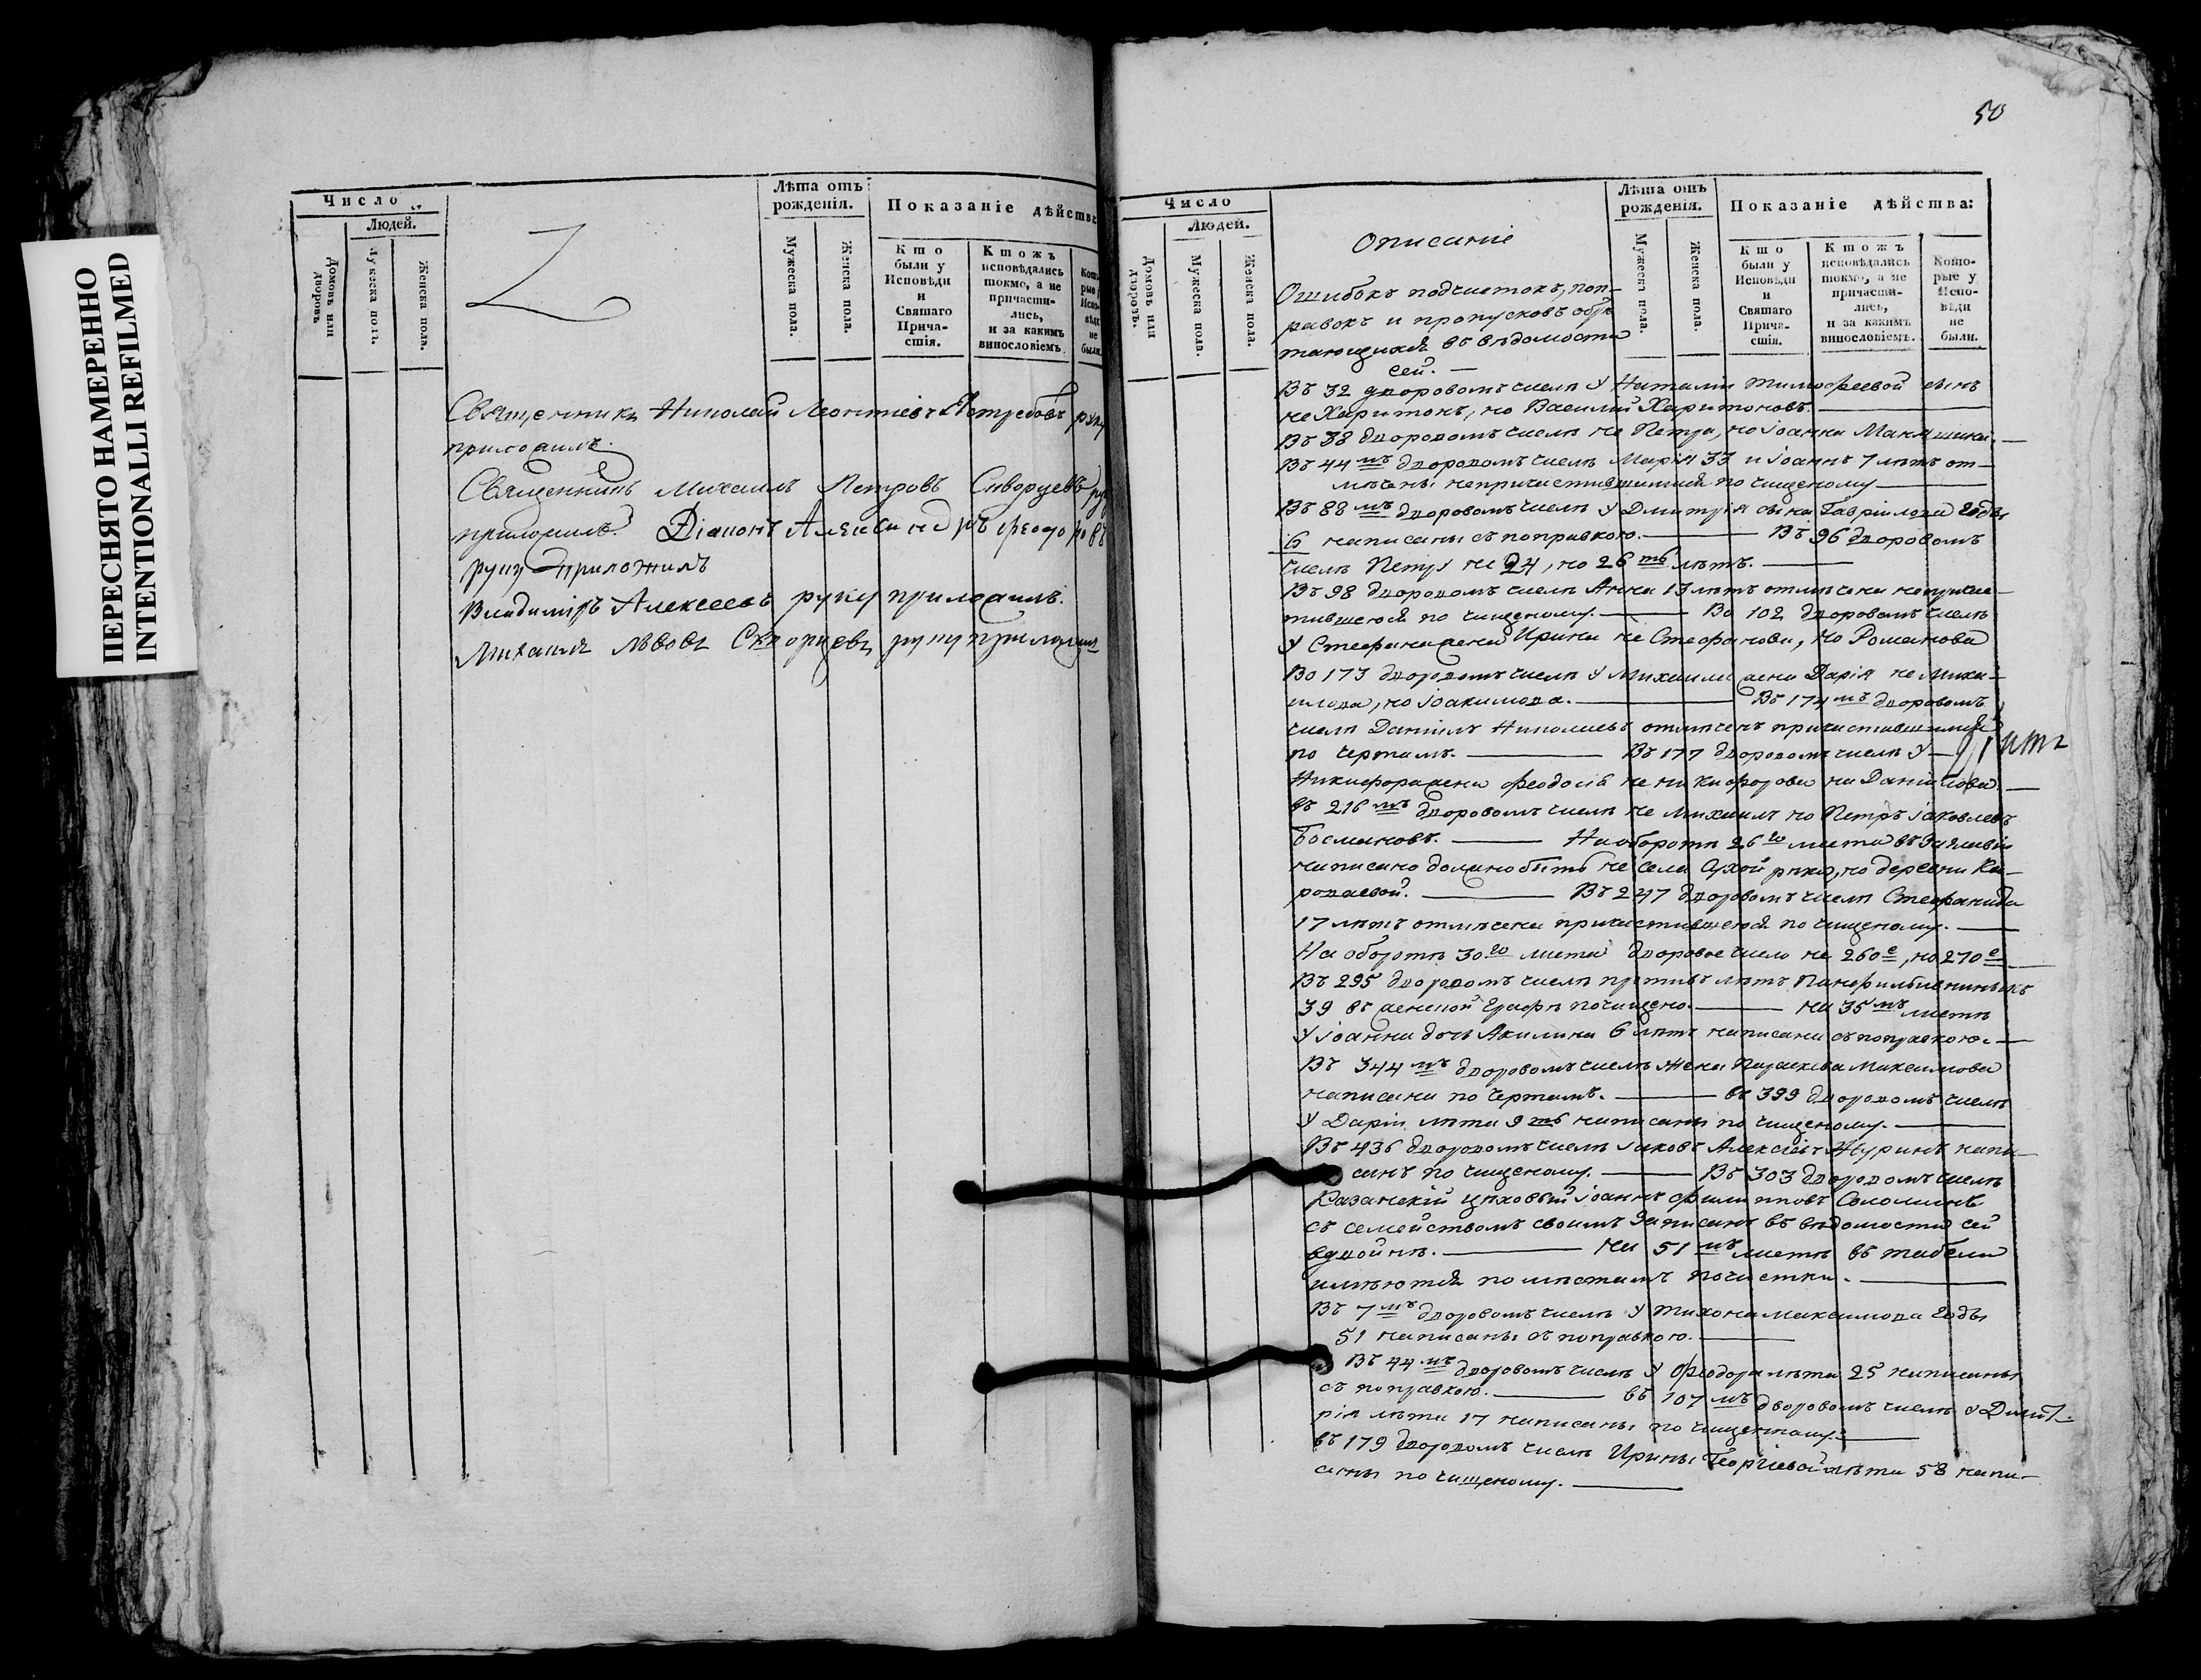 ПЕРЕСНЯТО НАМЕРЕННО
INTENTIONALLI REFILMED
Число
Людей.
Домовъ или дворовъ
Мужеска пола.
Женска пола.
Лѣта отъ рожденія.
Мужеска пола.
Женска пола.
Показаніе дѣйства
Кто были у Исповѣди и Святаго Причастія.
Ктожъ исповѣдались токмо, а не причастились, и за какимъ винословіемъ
Которые у Исповѣди не были.
Священникъ Николай Леонтіевъ руку
приложилъ.
Священникъ Михаилъ Петровъ Скворцовъ руку
приложилъ. Діаконъ Александръ Феодоровъ
руку приложилъ
Владиміръ Алексеевъ руку приложилъ.
Михаилъ Львовъ Скворцовъ руку приложилъ
50
Число
Людей.
Домовъ или дворовъ.
Мужеска пола.
Женска пола.
Лѣта отъ рожденія.
Мужеска пола.
Женска пола.
Показаніе дѣйства:
Кто были у Исповѣди и Святаго Причастія.
Ктожъ исповѣдались токмо, а не причастились, и за какимъ винословіемъ.
Которые у Исповѣди не были.
Описаніе
Ошибокъ подчистокъ, поп-
равокъ и пропусковъ обрѣ
тающихся въ вѣдомости
сей. —
Въ 32 дворовомъ числѣ У Наталіи Тимофеевой сынъ
не Харитонъ, но Василій Харитоновъ.
Въ 38 дворовомъ числѣ не Петра, но Іоанна
Въ 44мъ дворовомъ числѣ Марія 33 и Іоаннъ 7 лѣтъ от-
мѣчены непричастившимися по чищеному
Въ 88мъ дворовомъ числѣ У Дмитрія сына Гавріилова годы
6 написаны съ поправкою. — Въ 96 дворовомъ
числѣ Петру не 24, но 26ть лѣтъ.
Въ 98 дворовомъ числѣ Анна 13 лѣтъ отмѣчена непричас-
тившеюся по чищеному. — Во 102 дворовомъ числѣ
У Стефана жена Ирина не Стефанова, но Романова
Во 173 дворовомъ числѣ У Михаила жена Дарія не Миха-
илова, но Іоакимова. — Въ 174мъ дворовомъ
числѣ Даніилъ Николаевъ отмѣченъ причастившимся
по чертамъ. — Въ 177 дворовомъ числѣ У
Никифора жена Феодосія не Никифорова на Данилова
въ 216мъ дворовомъ числѣ не Михаилъ но Петръ Іаковлевъ
Босмановъ. — На оборотѣ 26го листа въ Заглавіи
написано должно быть не села Сухой рѣки, но деревни Ка-
Въ 247 дворовомъ числѣ Стефанида
17 лѣтъ отмѣчена причастившеюся по чищеному.
На оборотѣ 30го листа дворовое число не 260е, но 270е
Въ 295 дворовомъ числѣ противъ лѣтъ
39 въ женской Графѣ почищено. — на 35мъ листѣ
У Іоанна дочь Акилина 6 лѣтъ написана съ поправкою.
Въ 344мъ дворовомъ числѣ Жена Параскева Максимова
написана по чертамъ. — въ 399 дворовомъ числѣ
У Даріи лѣта 9ть написаны по чищеному.
Въ 436 дворовомъ числѣ Іаковъ Алексіевъ напи-
санъ по чищеному. — Въ 303 дворовомъ числѣ
Казанскій цѣховый Іоаннъ Филипповъ Соломинъ
съ семействомъ своимъ Записанъ въ вѣдомости сей
вдвойнѣ. — на 51мъ листѣ въ табели
имѣются по мѣстамъ почистки.
Въ 7мъ дворовомъ числѣ У Тихона Максимова годы
51 написаны съ поправкою.
Въ 44мъ дворовомъ числѣ У Феодора лѣта 25 написаны
съ поправкою. — въ 107мъ дворовомъ числѣ У Димит-
рія лѣта 17 написаны по чищенному.
въ 179 дворовомъ числѣ Ирины Георгіевой лѣта 58 напи-
саны по чищеному.